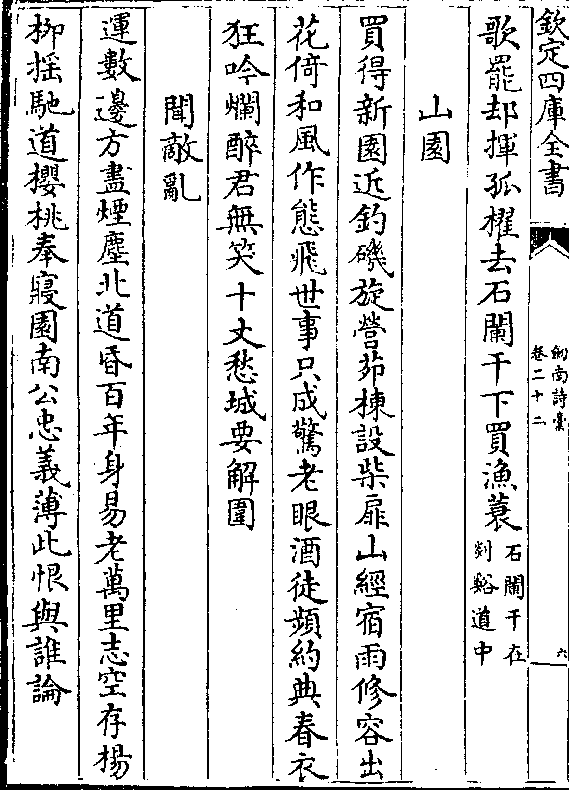 欽定四庫全書
劍南詩稾
卷二十二
六
歌罷却揮孤櫂去石闌干下買漁蓑石闌干在剡谿道中
山園
買得新園近釣磯旋營茆棟設柴扉山經宿雨修容出
花倚和風作態飛世事只成驚老眼酒徒頻約典春衣
狂吟爛醉君無笑十丈愁城要解圍
聞敵亂
運數邊方盡煙塵北道昏百年身易老萬里志空存楊
柳揺馳道櫻桃奉寢園南公忠義薄此恨與誰論